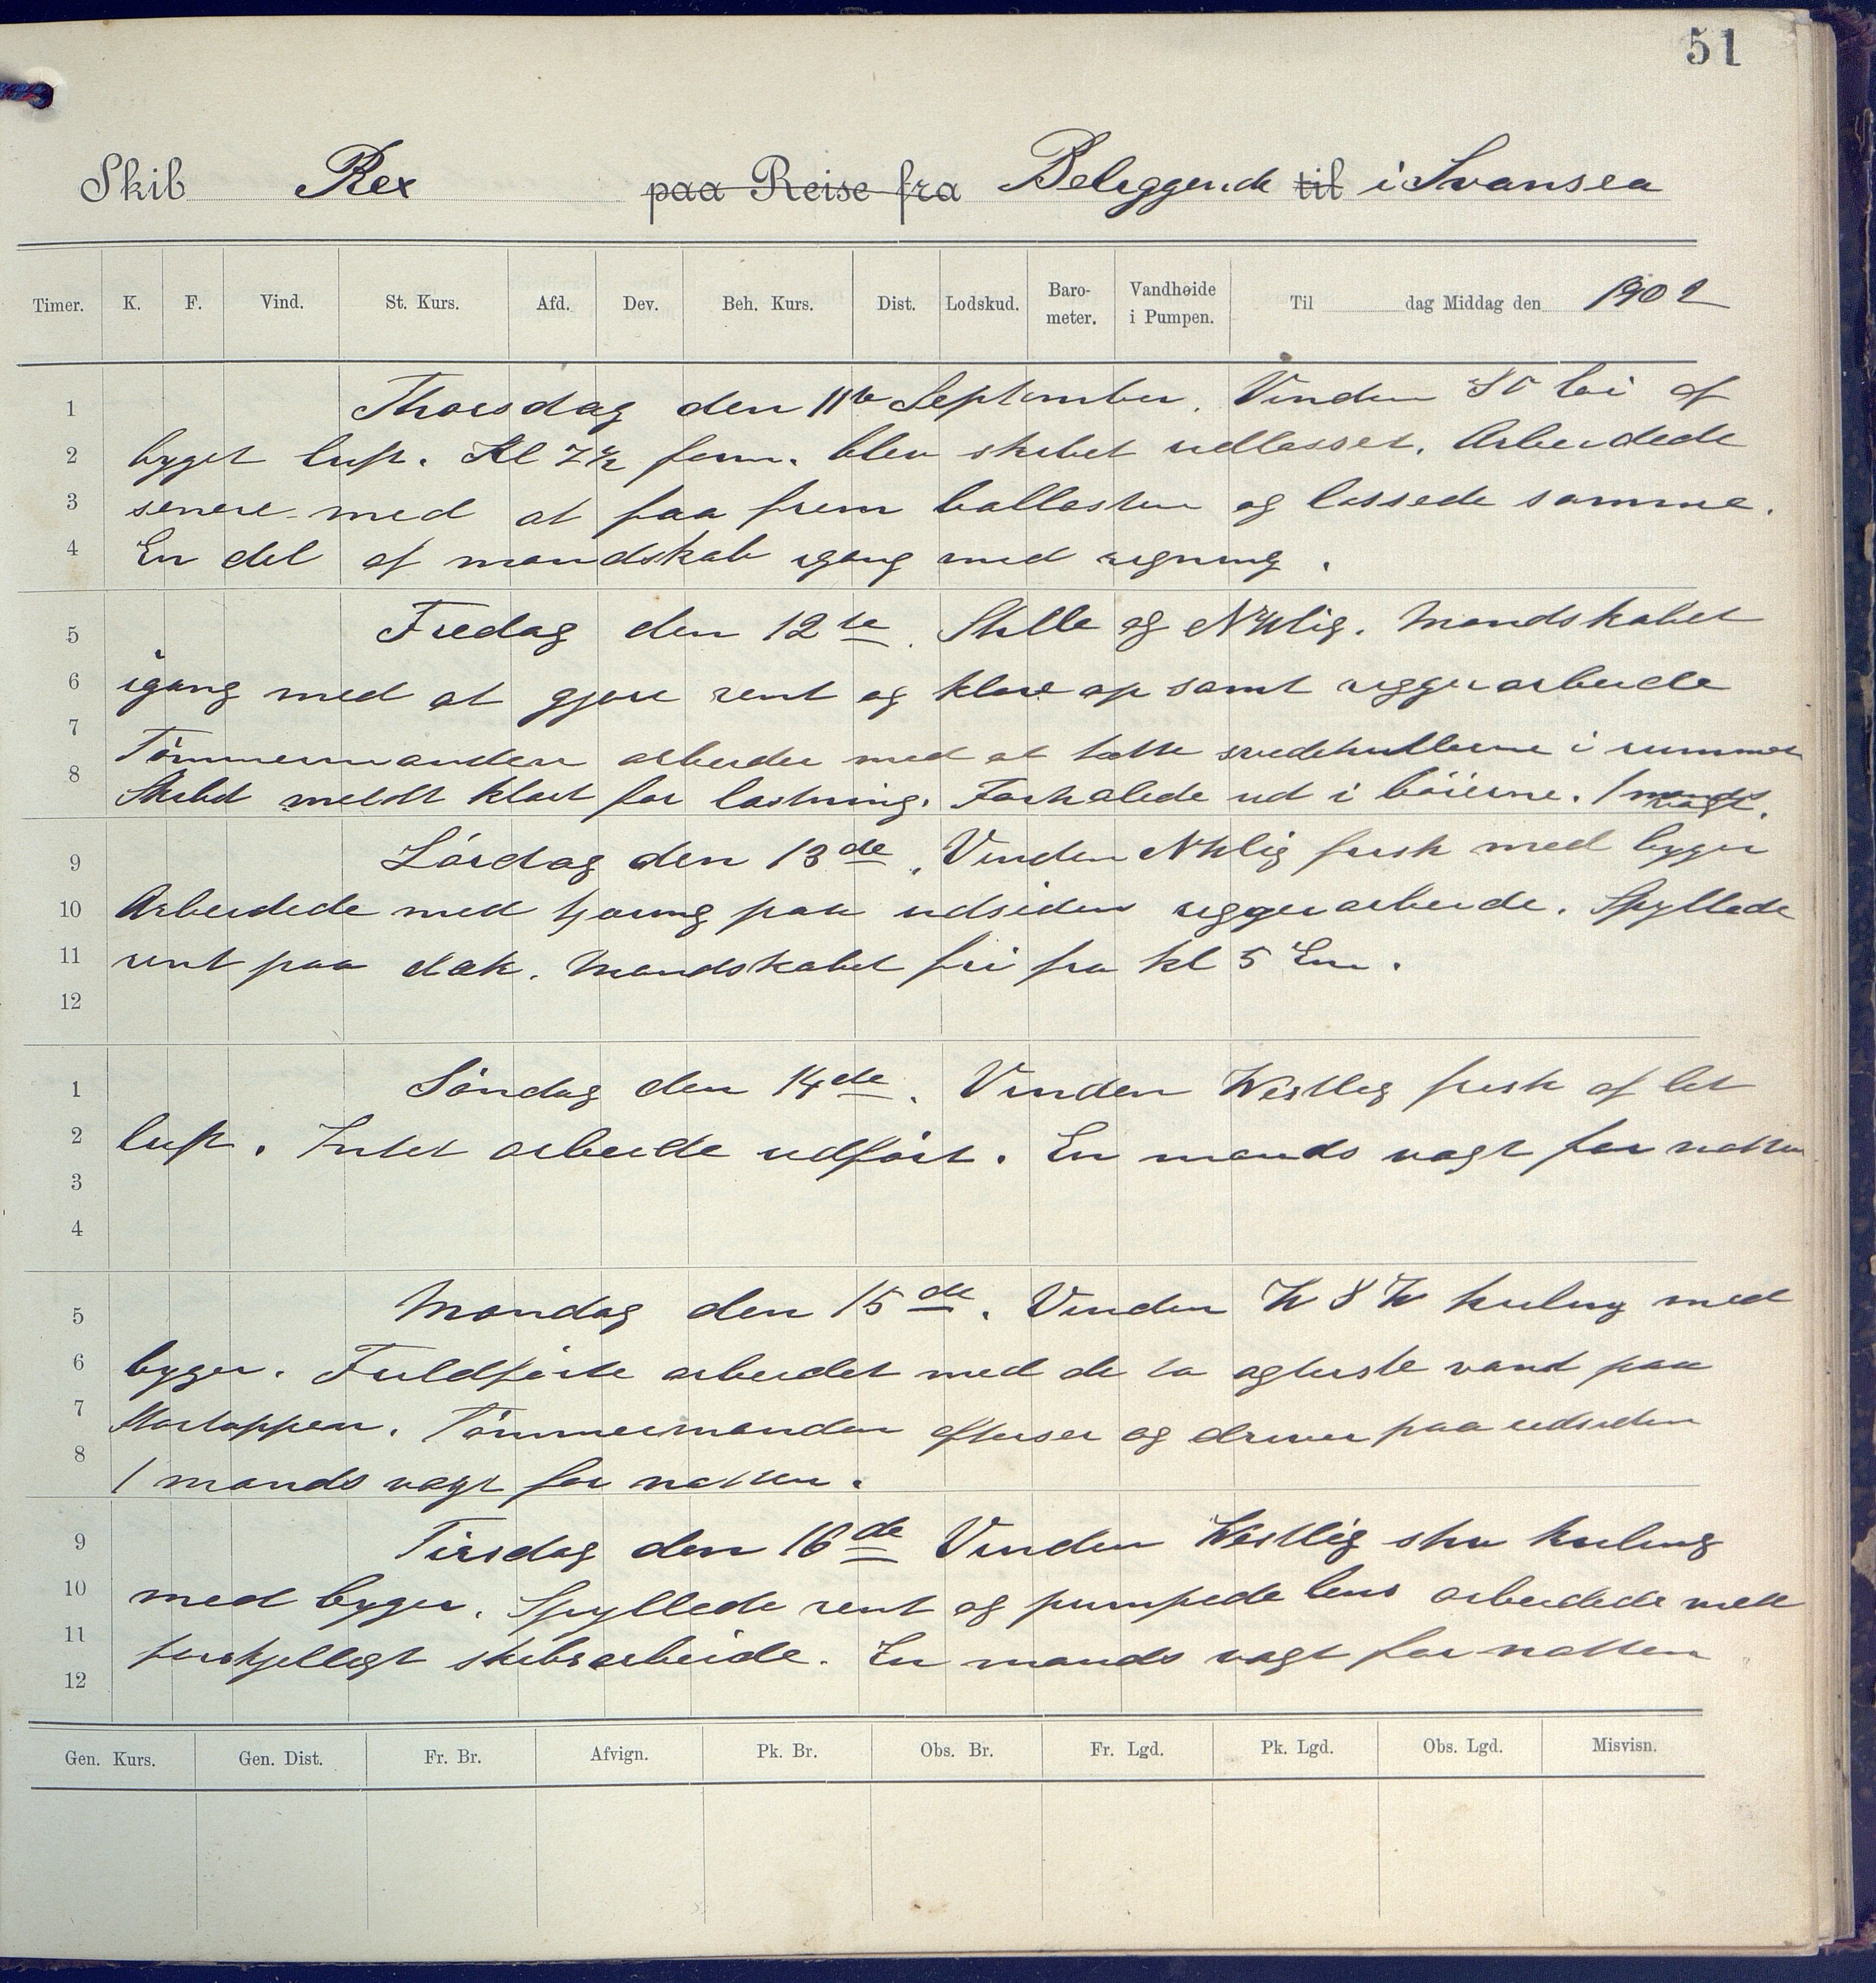 51
Skib Rex paa Reise fra Beliggende til i Svansea
Timer. K. F. Vind. St. Kurs. Afd. Dev. Beh. Kurs. Dist. Lodskud. Baro-meter. Vandhøide i Pumpen. Til dag Middag den 1902
1 Thorsdag den 11te September. Vinden SO lei af
2 byget luft. Kl 7½ form. blev skibet udlosset. Arbeidede
3 senere med at faa frem ballasten og lossede samme.
4 En del af mandskab igang med rigning.
5 Fredag den 12te. Stille og NVlig. Mandskabet
6 igang med at gjøre rent og klare op samt riggerarbeide
7 Tömmermanden arbeider med at tætte svedehullerne i rummet
8 Skibet meldt klart for lastning. Forhalede ud i böierne. 1 mands vagt.
9 Lördag den 13de. Vinden NVlig frisk med byger
10 Arbeidede med tjæring paa udsiden riggerarbeide. Spyllede
11 rent paa dæk. Mandskabet fri fra kl 5 Em.
12
1 Söndag den 14de. Vinden Westlig frisk af let
2 luft. Intet arbeide udfört. En mands vagt for natten
3
4
5 Mandag den 15de. Vinden WSW kuling med
6 byger. Fuldförte arbeidet med de to agterste vant paa
7 Stortoppen. Tömmermanden efterser og driver paa udsiden
8 1 mands vagt for natten.
9 Tirsdag den 16de Vinden Westlig stiv kuling
10 med byger. Spyllede rent og pumpede lens arbeidede med
11 forskjelligt skibsarbeide. En mands vagt for natten
12
Gen. Kurs. Gen. Dist. Fr. Br. Afvign. Pk. Br. Obs. Br. Fr. Lgd. Pk. Lgd. Obs. Lgd. Misvisn.